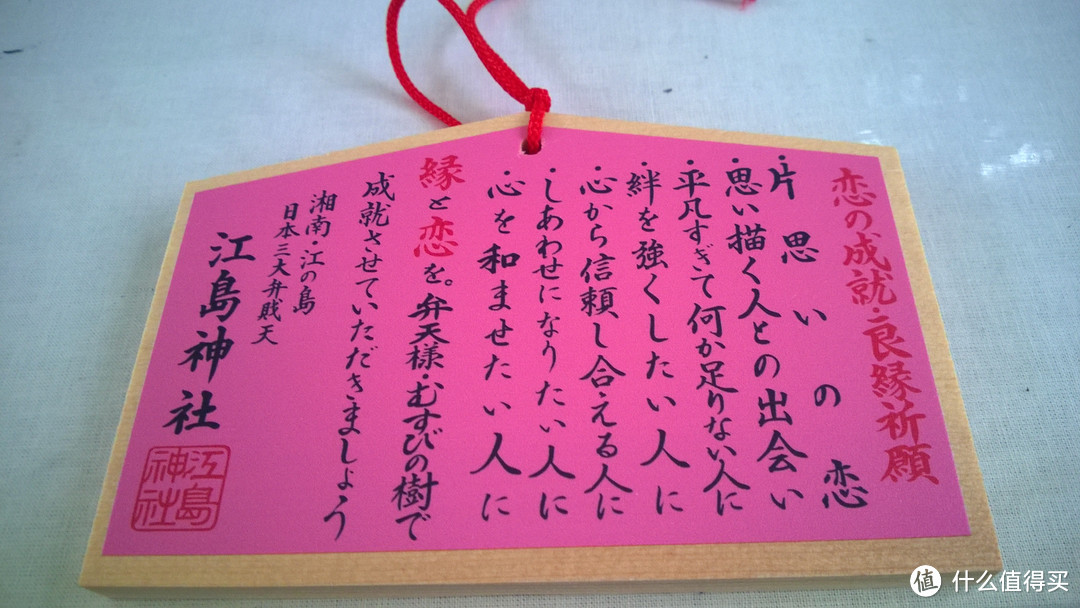 恋の成就・良縁祈願
・片思いの恋
・思い描く人との出会い
・平凡すぎて何か足りない人に
・絆を強くしたい人に
・心から信頼し合える人に
・しあわせになりたい人に
・心を和ませたい人に
縁と恋を。弁天様・むすびの樹で
成就させていただきましょう
湘南・江の島
日本三大弁財天
江島神社
江島神社
值 什么值得买